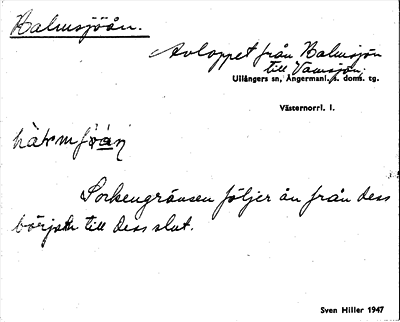 Balmsjöån.
Avloppet från Balmsjön
till Vamsjön.
Ullångers sn, Ångermanl. s. doms. tg.
Västernorrl. l.
Sockengränsen följer ån från dess
början till dess slut.
Sven Hiller 1947